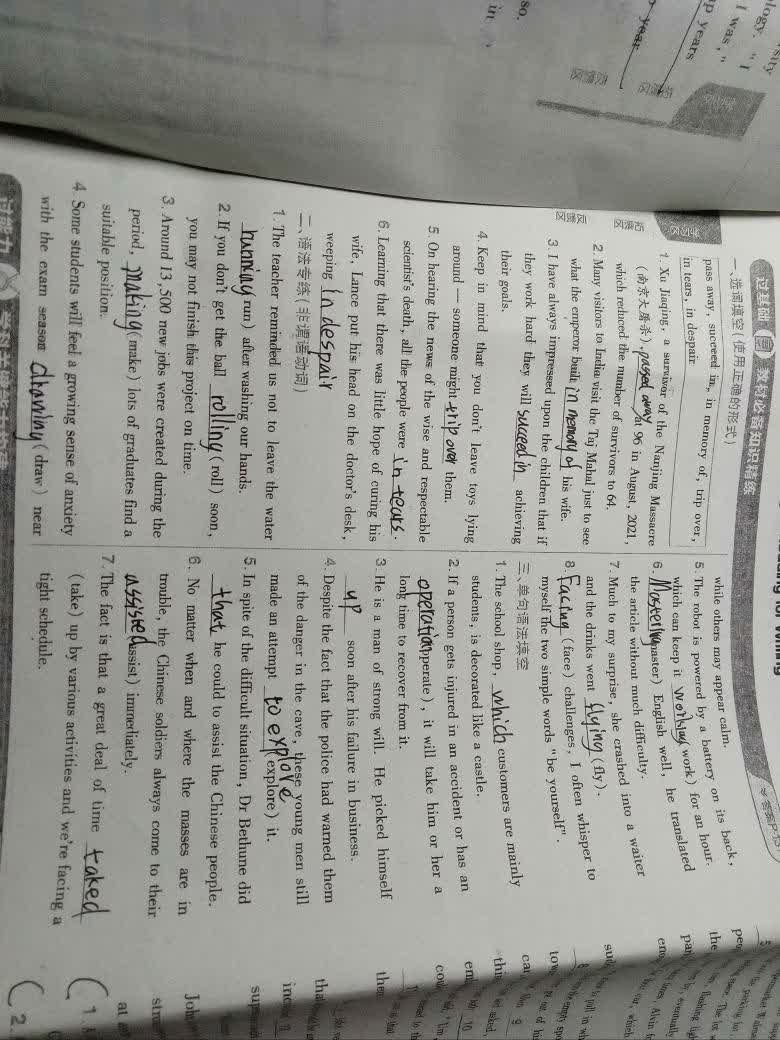 过基础 教材必备知识精练
一、选词填空(使用正确的形式)
pass away, succeed in, in memory of, trip over,
in tears, in despair
1. Xu Jiaqing, a survivor of the Nanjing Massacre
(南京大屠杀), passed away at 96 in August, 2021,
which reduced the number of survivors to 64.
2. Many visitors to India visit the Taj Mahal just to see
what the emperor built in memory of his wife.
3. I have always impressed upon the children that if
they work hard they will succeed in achieving
their goals.
4. Keep in mind that you don't leave toys lying
around — someone might trip over them.
5. On hearing the news of the wise and respectable
scientist's death, all the people were in tears.
6. Learning that there was little hope of curing his
wife, Lance put his head on the doctor's desk,
weeping in despair
二、语法专练(非谓语动词)
1. The teacher reminded us not to leave the water
running run) after washing our hands.
2. If you don't get the ball rolling (roll) soon,
you may not finish this project on time.
3. Around 13,500 new jobs were created during the
period, making (make) lots of graduates find a
suitable position.
4. Some students will feel a growing sense of anxiety
with the exam season drawing (draw) near
while others may appear calm.
5. The robot is powered by a battery on its back,
which can keep it working work) for an hour.
6. Mastering master) English well, he translated
the article without much difficulty.
7. Much to my surprise, she crashed into a waiter
and the drinks went flying (fly).
8. Facing (face) challenges, I often whisper to
myself the two simple words "be yourself".
三、单句语法填空
1. The school shop, which customers are mainly
students, is decorated like a castle.
2. If a person gets injured in an accident or has an
operation operate), it will take him or her a
long time to recover from it.
3. He is a man of strong will. He picked himself
up soon after his failure in business.
4. Despite the fact that the police had warned them
of the danger in the cave, these young men still
made an attempt to explore explore) it.
5. In spite of the difficult situation, Dr Bethune did
that he could to assist the Chinese people.
6. No matter when and where the masses are in
trouble, the Chinese soldiers always come to their
assisted assist) immediately.
7. The fact is that a great deal of time taked
(take) up by various activities and we're facing a
tight schedule.